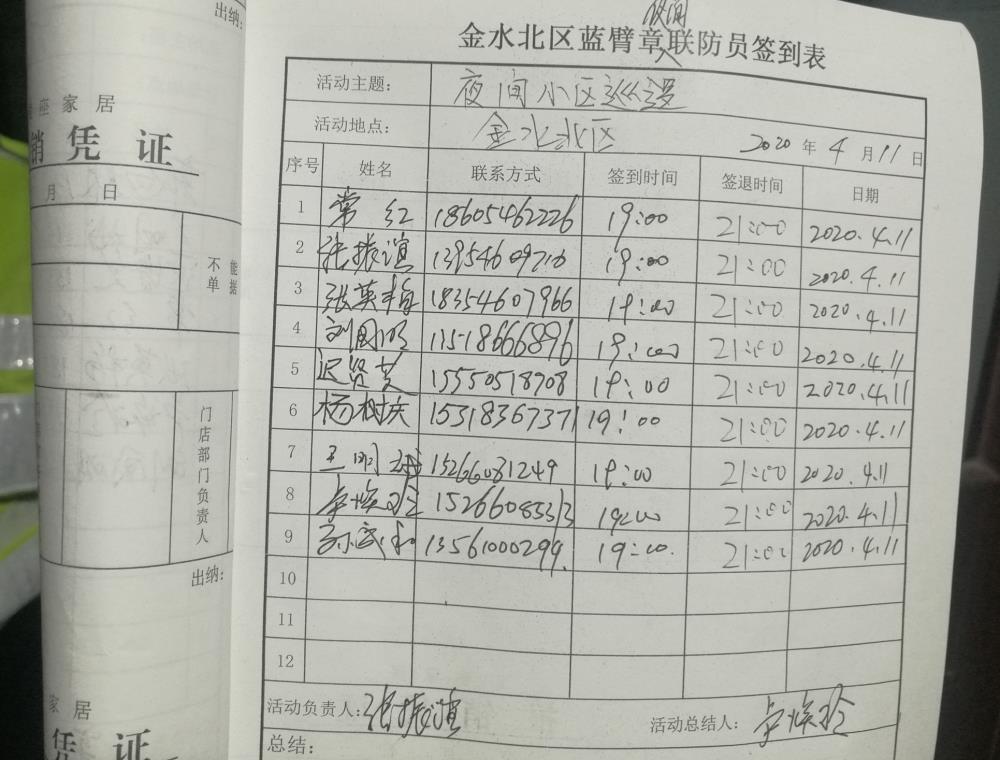 出纳:
座家居
销凭证
月 日
不 能
单 据
门店部门负责人
出纳:
家居
凭证
夜间
金水北区蓝臂章联防员签到表
活动主题: 夜间小区巡逻
活动地点: 金水北区 2020年4月11日
序号 姓名 联系方式 签到时间 签退时间 日期
1 常红 18605462226 19:00 21:00 2020.4.11
2 张振谊 19:00 21:00 2020.4.11
3 张英梅 18354607966 19:00 21:00 2020.4.11
4 刘国明 19:00 21:00 2020.4.11
5 迟贤芝 15550518908 19:00 21:00 2020.4.11
6 杨树庆 15318367371 19:00 21:00 2020.4.11
7 王明 15266081249 19:00 21:00 2020.4.11
8 15266085313 19:00 21:00 2020.4.11
9 孙 13561000299. 19:00. 21:00 2020.4.11
10
11
12
活动负责人: 张振谊 活动总结人:
总结: